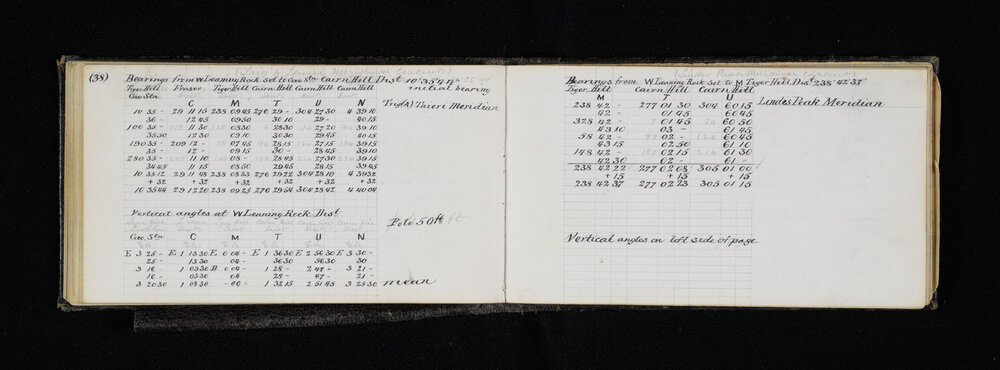 (38) Bearings from W Leaning Rock set to Geo. Stn Cairn Hill Dist 10°35'44"
initial bearing
Tiger Hill Fraser Tiger Hill Cairn Hill Cairn Hill Cairn Hill
Geo. Stn.
C M T U N Trig(A) Taieri Meridian
10 35 - 29 11 15 238 09 45 276 29 - 304 27 30 4 39 10
36 - 12 45 09 50 30 10 29 - 40 15
100 35 - 11 30 08 30 28 30 27 20 39 10
35 50 12 30 09 10 30 30 29 45 40 15
190 35 - 209 12 - 07 45 28 15 27 15 39 15
35 - 12 - 09 15 30 - 28 45 39 10
280 35 - 11 10 08 - 28 45 27 30 39 15
34 45 11 15 08 50 29 45 28 15 39 45
10 35 12 29 11 48 238 08 53 276 29 22 304 28 10 4 39 32
+ 32 + 32 + 32 + 32 + 32 + 32
10 35 44 29 12 20 238 09 25 276 29 54 304 28 42 4 40 04
Vertical angles at W Leaning Rock Dist
Pole 50 ft
Geo. Stn C M T U N
E 3 25 - E 1 13 30 E 0 04 - E 1 36 30 E 2 56 30 E 3 30 -
25 - 13 30 04 - 36 30 56 30 30
3 16 - 1 03 30 D 0 04 - 1 28 - 2 47 - 3 21 -
16 - 03 30 04 - 28 - 47 - 21 -
3 20 30 1 08 30 - 00 - 1 32 15 2 51 45 3 25 30 mean
Bearings from W Leaning Rock Set to M Tiger Hill Dist 238° 42' 37"
Tiger Hill Cairn Hill Cairn Hill
M T U
238 42 - 277 01 30 304 60 15 Lindes Peak Meridian
42 - 01 45 60 45
328 42 - 7 01 45 60 50
43 10 03 - 61 45
58 42 - 02 - 60 45
43 15 02 50 61 10
148 42 - 02 15 61 30
42 30 02 - 61 -
238 42 22 277 02 08 305 01 00
+ 15 + 15 + 15
238 42 37 277 02 23 305 01 15
Vertical angles on left side of page